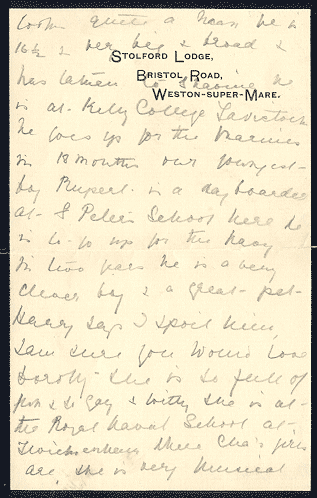 looks quite a man he is
16½ & very big & broad &
STOLFORD LODGE,
BRISTOL ROAD,
WESTON-SUPER-MARE.
has taken to shaving he
is at Kelly College Tavistock
he goes up for the Marines
in 18 months our youngest
boy Rupert is a day boarder
at S Peters School here he
is to go up for the Navy
in two years he is a very
clever boy & a great pet
Harry says I spoil him,
I am sure you would love
Dorothy she is so full of
fun & so gay & witty she is at
the Royal Naval School at
Twickenham where Cha's girls
are she is very musical